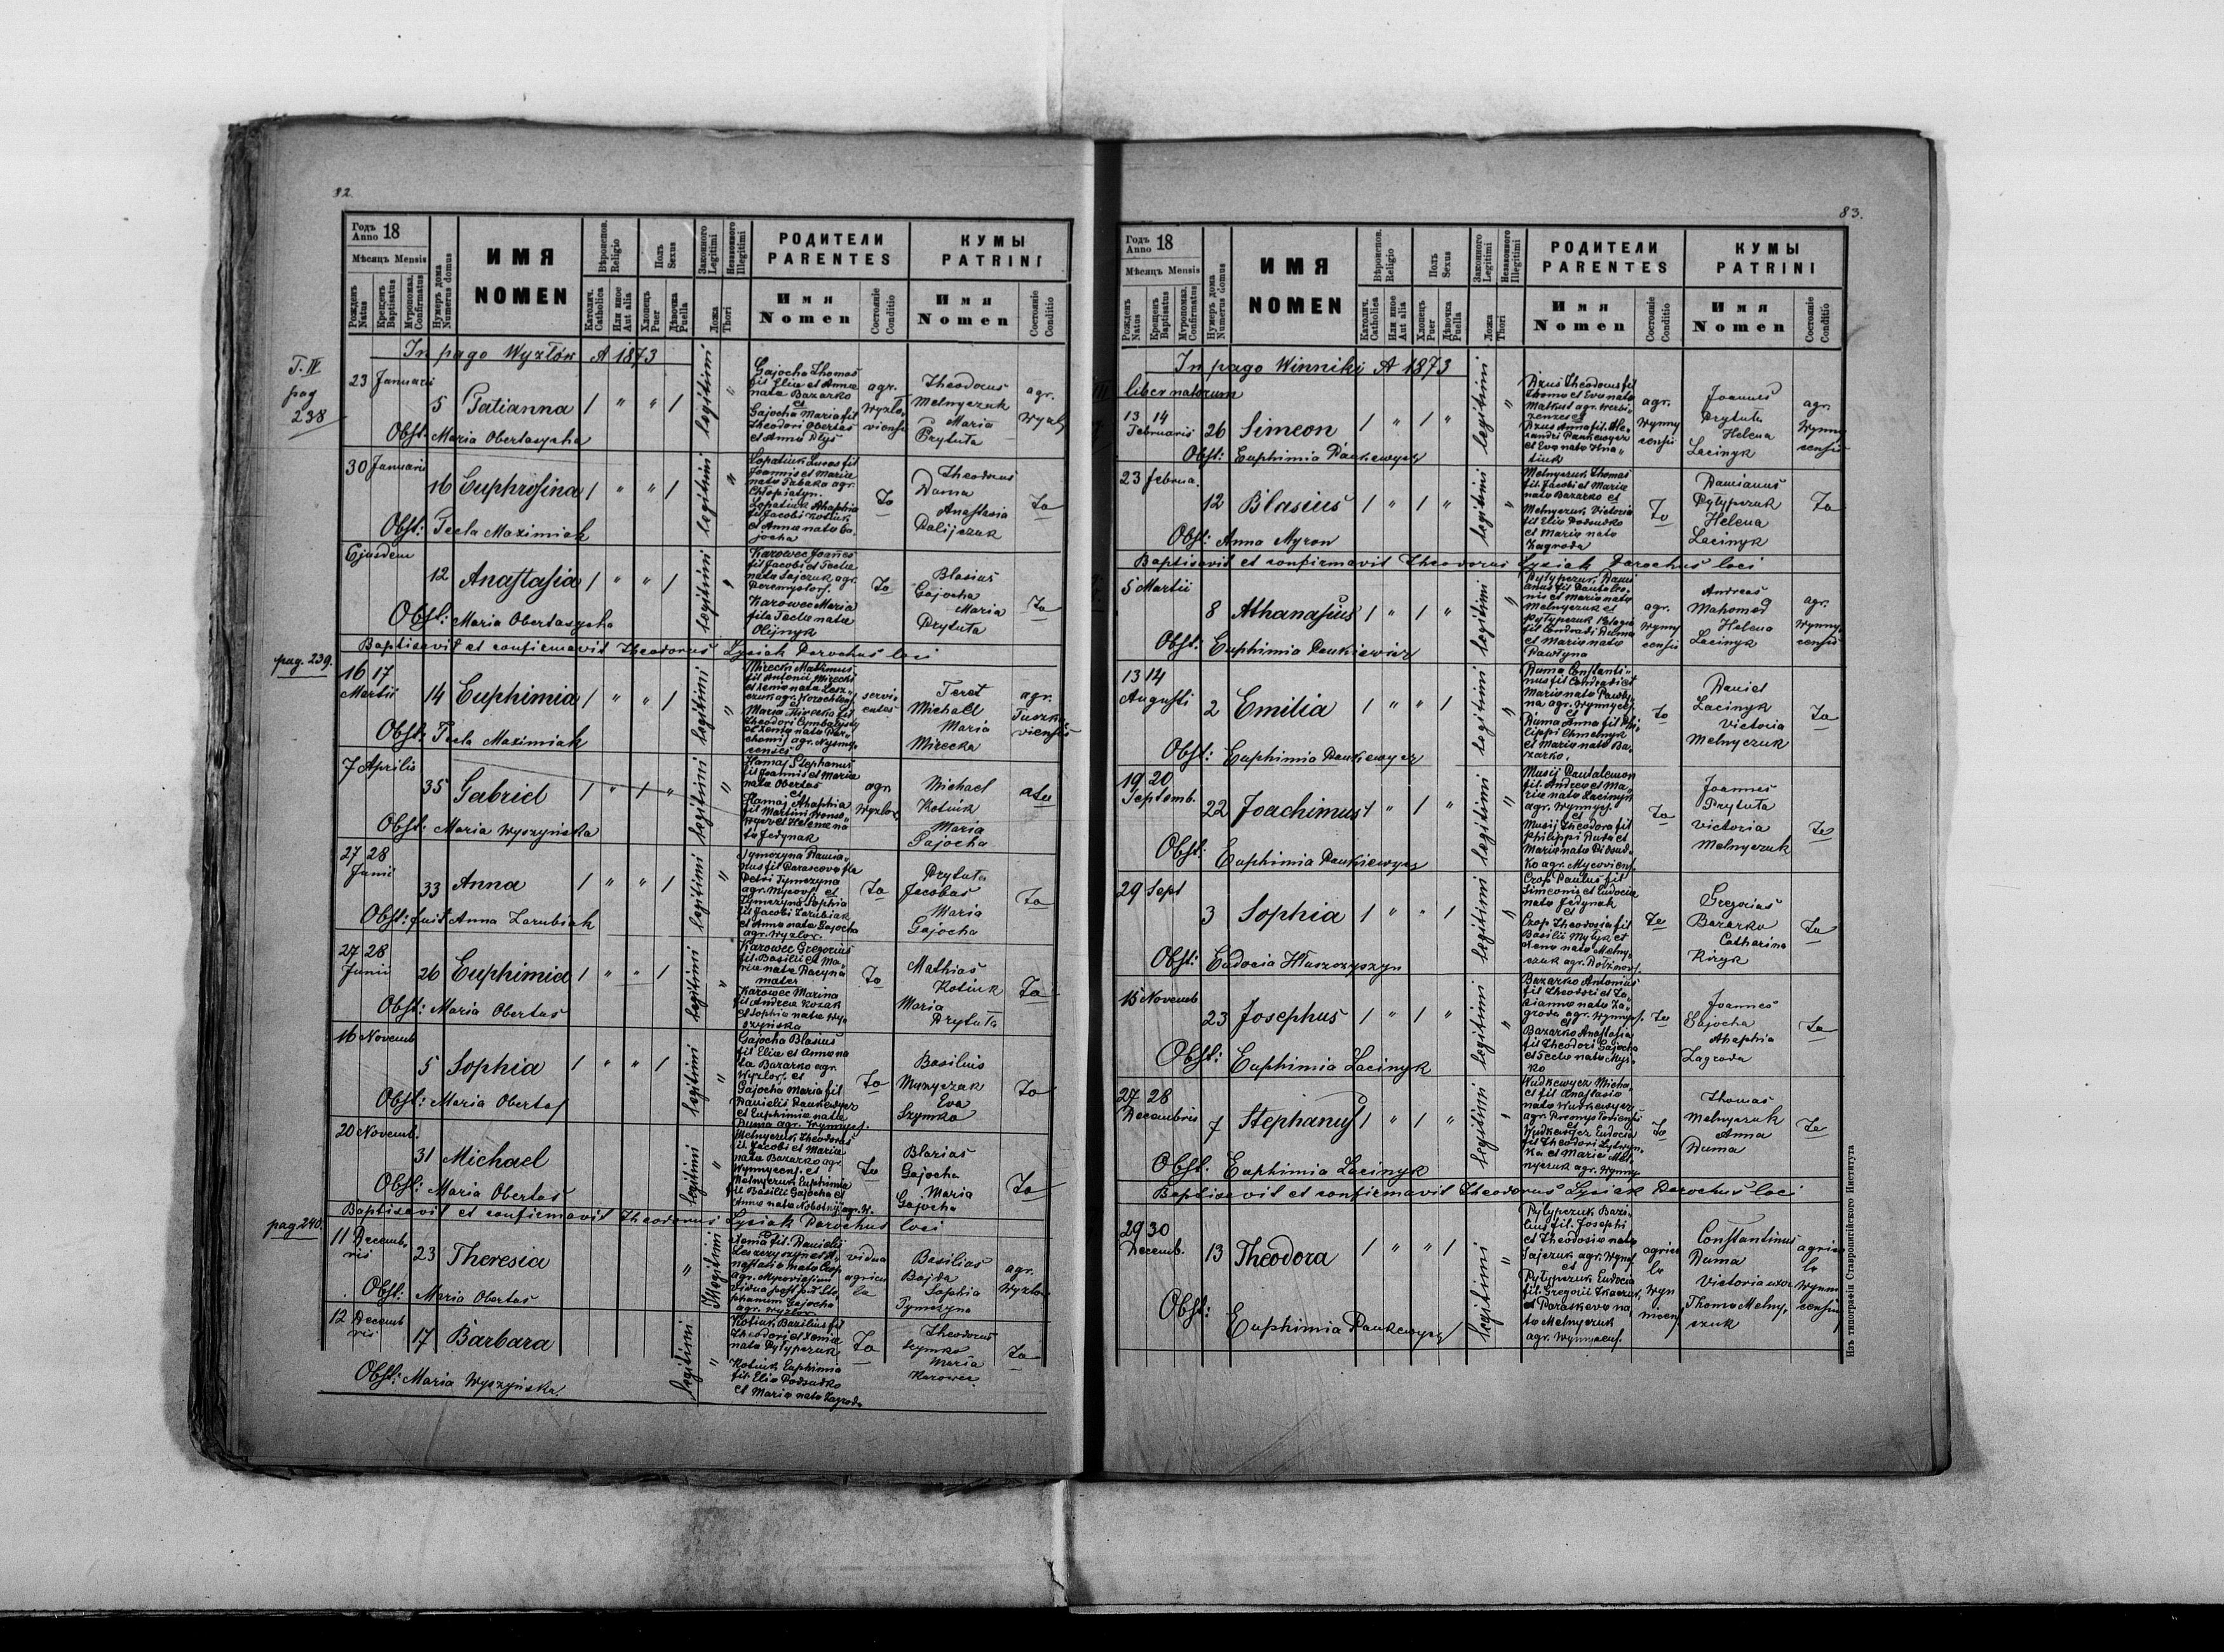 82.
Годъ Anno 18
Мѣсяцъ Mensis
Рожденъ Natus
Крещенъ Baptisatus
Мѵропомаз. Confirmatus
Нумеръ дома Numerus domus
ИМЯ
NOMEN
Вѣроиспов. Religio
Католич. Catholica
Или иное Aut alia
Полъ Sexus
Хлопецъ Puer
Дѣвочка Puella
Законного Legitimi
Незаконного Illegitimi
Ложа Thori
РОДИТЕЛИ
PARENTES
Имя
Nomen
Состояніе Conditio
КУМЫ
PATRINI
Имя
Nomen
Состояніе Conditio
In pago Wyzłów A 1873
T. IV
pag
238
23 Januarii
5 Tatianna 1 " " 1 legitimi "
Gajocha Thomas
fil Eliæ et Annæ
nata Bazarko
et
Gajocha Maria fil
Theodori Obertas
et Anna
agr.
Theodorus
Melnyczuk
Maria
Prytuła
agr.
Obst: Maria Obertasycha
30 Januarii
16 Euphrosina 1 " " 1 legitimi "
Lopatiuk Lucas fil
Joannis et Mariæ
nata Tabaka agr.
Lopatiuk Ahaphia
fil Jacobi Kotiuk
et Annæ nata Ga-
jocha
To
Theodorus
Duma
Anastasia
Palijczuk
To
Obst: Tecla Maximiak
Ejusdem
12 Anastasia 1 " " 1 legitimi "
Karowec Joañes
fil Jacobi et Teclæ
nata Sajczuk agr.
Karowec Maria
fila Teclæ nata
Olijnyk
To
Blasius
Gajocha
Maria
Prytuła
To
Obst: Maria Obertasycha
Baptisavit et confirmavit Theodorus Lysiak Parochus loci
pag. 239.
16 17
Martii
14 Euphimia 1 " " 1 legitimi "
fil Antonii Mirecki
Teret
Michael
Maria
Mirecka
agr.
Obst: Tecla Maximiak
7 Aprilis
35 Gabriel 1 " 1 " legitimi "
Hamaj Stephanus
fil Joannis et Maria
nata Obertas
et
Hamaj Ahaphia
nata Jedynak
agr
Michael
Kotiuk
Maria
Gajocha
Obst: Maria Wyszyńska
27 28
Junii
33 Anna 1 " " 1 legitimi "
Petri Tymczyna
Tymczyna Sophia
fil Jacobi Zarubiak
et Anna nata Gajocha
agr. Wyzlov.
To
Prytuła
Jacobus
Maria
Gajocha
To
Obst: fuit Anna Zarubiak
27 28
Junii
26 Euphimia 1 " " 1 legitimi "
Karowec Gregorius
fil. Basilii et Ma-
mater
Karowec Marina
fil Andreæ Kozak
et Sophia nata Wy-
szyńska
To
Mathias
Kotiuk
Maria
Prytuła
To
Obst: Maria Obertas
16 Novemb
5 Sophia 1 " " 1 legitimi "
Gajocha Blasius
fil Eliæ et Anna na
ta Bazarko agr.
Wyzlov. et
Gajocha Maria fil
Danielis Dankewycz
et Euphimiæ nata
Duma agr. Wynnycs.
To
Basilius
Eva
Szymko
To
Obst: Maria Obertas
20 Novemb.
31 Michael legitimi "
Melnyczuk Theodorus
fil Jacobi et Maria
nata Bazarko agr
Wynnycens. et
Melnyczuk Euphimia
fil Basilii Gajocha et
To
Blasius
Gajocha
Maria
Gajocha
To
Obst: Maria Obertas
Baptisavit et confirmavit Theodorus Lysiak Parochus loci
pag 240.
11 Decemb-
ris
23 Theresia " Illegitimi
Xenia fil. Danielis
vidua
agrico
la
Basilius
Bajda
Sophia
Tymczyna
agr.
Obst: Maria Obertas
12 Decemb
ris
17 Barbara legitimi "
Kotiuk Basilius fil
Theodori et Xenia
nata Pylypczuk
Kotiuk Euphimia
fil Elia Podsudko
et Maria nata Zagroda
To
Theodorus
Szymko
Maria
Karowec
To
Obst: Maria Wyszyńska.
83.
Годъ Anno 18
Мѣсяцъ Mensis
Рожденъ Natus
Крещенъ Baptisatus
Мѵропомаз. Confirmatus
Нумеръ дома Numerus domus
ИМЯ
NOMEN
Вѣроиспов. Religio
Католич. Catholica
Или иное Aut alia
Полъ Sexus
Хлопецъ Puer
Дѣвочка Puella
Законного Legitimi
Незаконного Illegitimi
Ложа Thori
РОДИТЕЛИ
PARENTES
Имя
Nomen
Состояніе Conditio
КУМЫ
PATRINI
Имя
Nomen
Состояніе Conditio
In pago Winniki A 1873
liber natorum
13 14
Februarii
26 Simeon 1 " 1 " legitimi "
Theodorus fil
Thoma et Eva nata
Anna fil. Ale-
xandri Dankewycz
et Eva nata Hna-
tiuk
agr.
Wynny
censis
Joannes
Prytuła
Helena
Lacinyk
agr.
Wynny
censis
Obst: Euphimia Dankewycz
23 februa.
12 Blasius 1 " 1 " legitimi "
Melnyczuk Thomas
fil. Jacobi et Maria
nata Bazarko et
Melnyczuk Victoria
fil Elia Podsudko
et Maria nata
Zagroda
To
Damianus
Pyłypczuk
Helena
Lacinyk
To
Obst: Anna Myron
Baptisavit et confirmavit Theodorus Lysiak Parochus loci
5 Martii
8 Athanasius 1 " 1 " legitimi "
Pyłypczuk Dami
anus fil Pantaleo-
nis et Maria nata
Melnyczuk et
Pyłypczuk Pelagia
fil Condradi Duma
et Maria nata
Pawłyna
agr.
Wynny
censis
Andreas
Mahomed
Helena
Lacinyk
agr.
Wynny
censis
Obst: Euphimia Dankiewicz
13 14
Augusti
2 Emilia 1 " " 1 legitimi "
Duma Constanti-
nus fil Condradi et
Maria nata Pawły-
na agr. Wynnycs.
et
Duma Anna fil Phi-
lippi Chmelnyk
et Maria nata Ba-
zarko.
To
Daniel
Lacinyk
Victoria
Melnyczuk
To
Obst: Euphimia Dankewycz
19 20
Septemb.
22 Joachimus 1 " 1 " legitimi "
Musij Pantalemon
fil. Andrea et Ma-
riæ nata Lacinyk
agr. Wynnycs.
et
Musij Theodora fil
Philippi Duda et
Maria nata Pidsud-
ko agr. Mycoviens.
To
Joannes
Prytuła
Victoria
Melnyczuk
To
Obst: Euphimia Dankiewycz
29 Sept
3 Sophia 1 " " 1 legitimi "
Czop Paulus fil
Simeonis et Eudocia
nata Jedynak
et
Czop Theodosia fil
Basilii Mylyk et
Xena nata Melny-
czuk agr.
To
Gregorius
Bazarko
Catharina
Kiryk
To
Obst: Eudocia Hluszczyszyn
15 Novemb
23 Josephus 1 " 1 " legitimi "
Bazarko Antonius
fil Theodori et Ta-
tianna nata Za-
groda agr. Wynnycs.
et
Bazarko Anastasia
fil Theodori Gajocha
et Tecla nata Mys-
ko
To
Joannes
Gajocha
Ahaphia
Zagroda
To
Obst: Euphimia Lacinyk
27 28
Decembris
7 Stephanus 1 " 1 " legitimi "
Wudkewycz Micha-
el fil Anastasia
nata Wudkewycz
et
Wudkewycz Eudocia
fil Theodori Lytwyn-
ka et Maria Mel-
nyczuk agr. Wynny
To
Thomas
Melnyczuk
Anna
Duma
To
Obst. Euphimia Lacinyk
Baptisavit et confirmavit Theodorus Lysiak Parochus loci
29 30
Decemb.
13 Theodora 1 " " 1 legitimi "
Pyłypczuk Basi-
lius fil. Josephi
et Theodosia nata
Sajczuk agr. Wynns
et
Pyłypczuk Eudocia
fil. Gregorii Tkaczuk
et Paraskeva na
ta Melnyczuk
agr. Wynnicens.
agrico
la
Wyn
nicens
Constantinus
Duma
Victoria uxor
Thoma Melny-
czuk
agrico
la
Wynni
censis
Obst: Euphimia Dankewycz
Изъ типографіи Ставропигійского Института